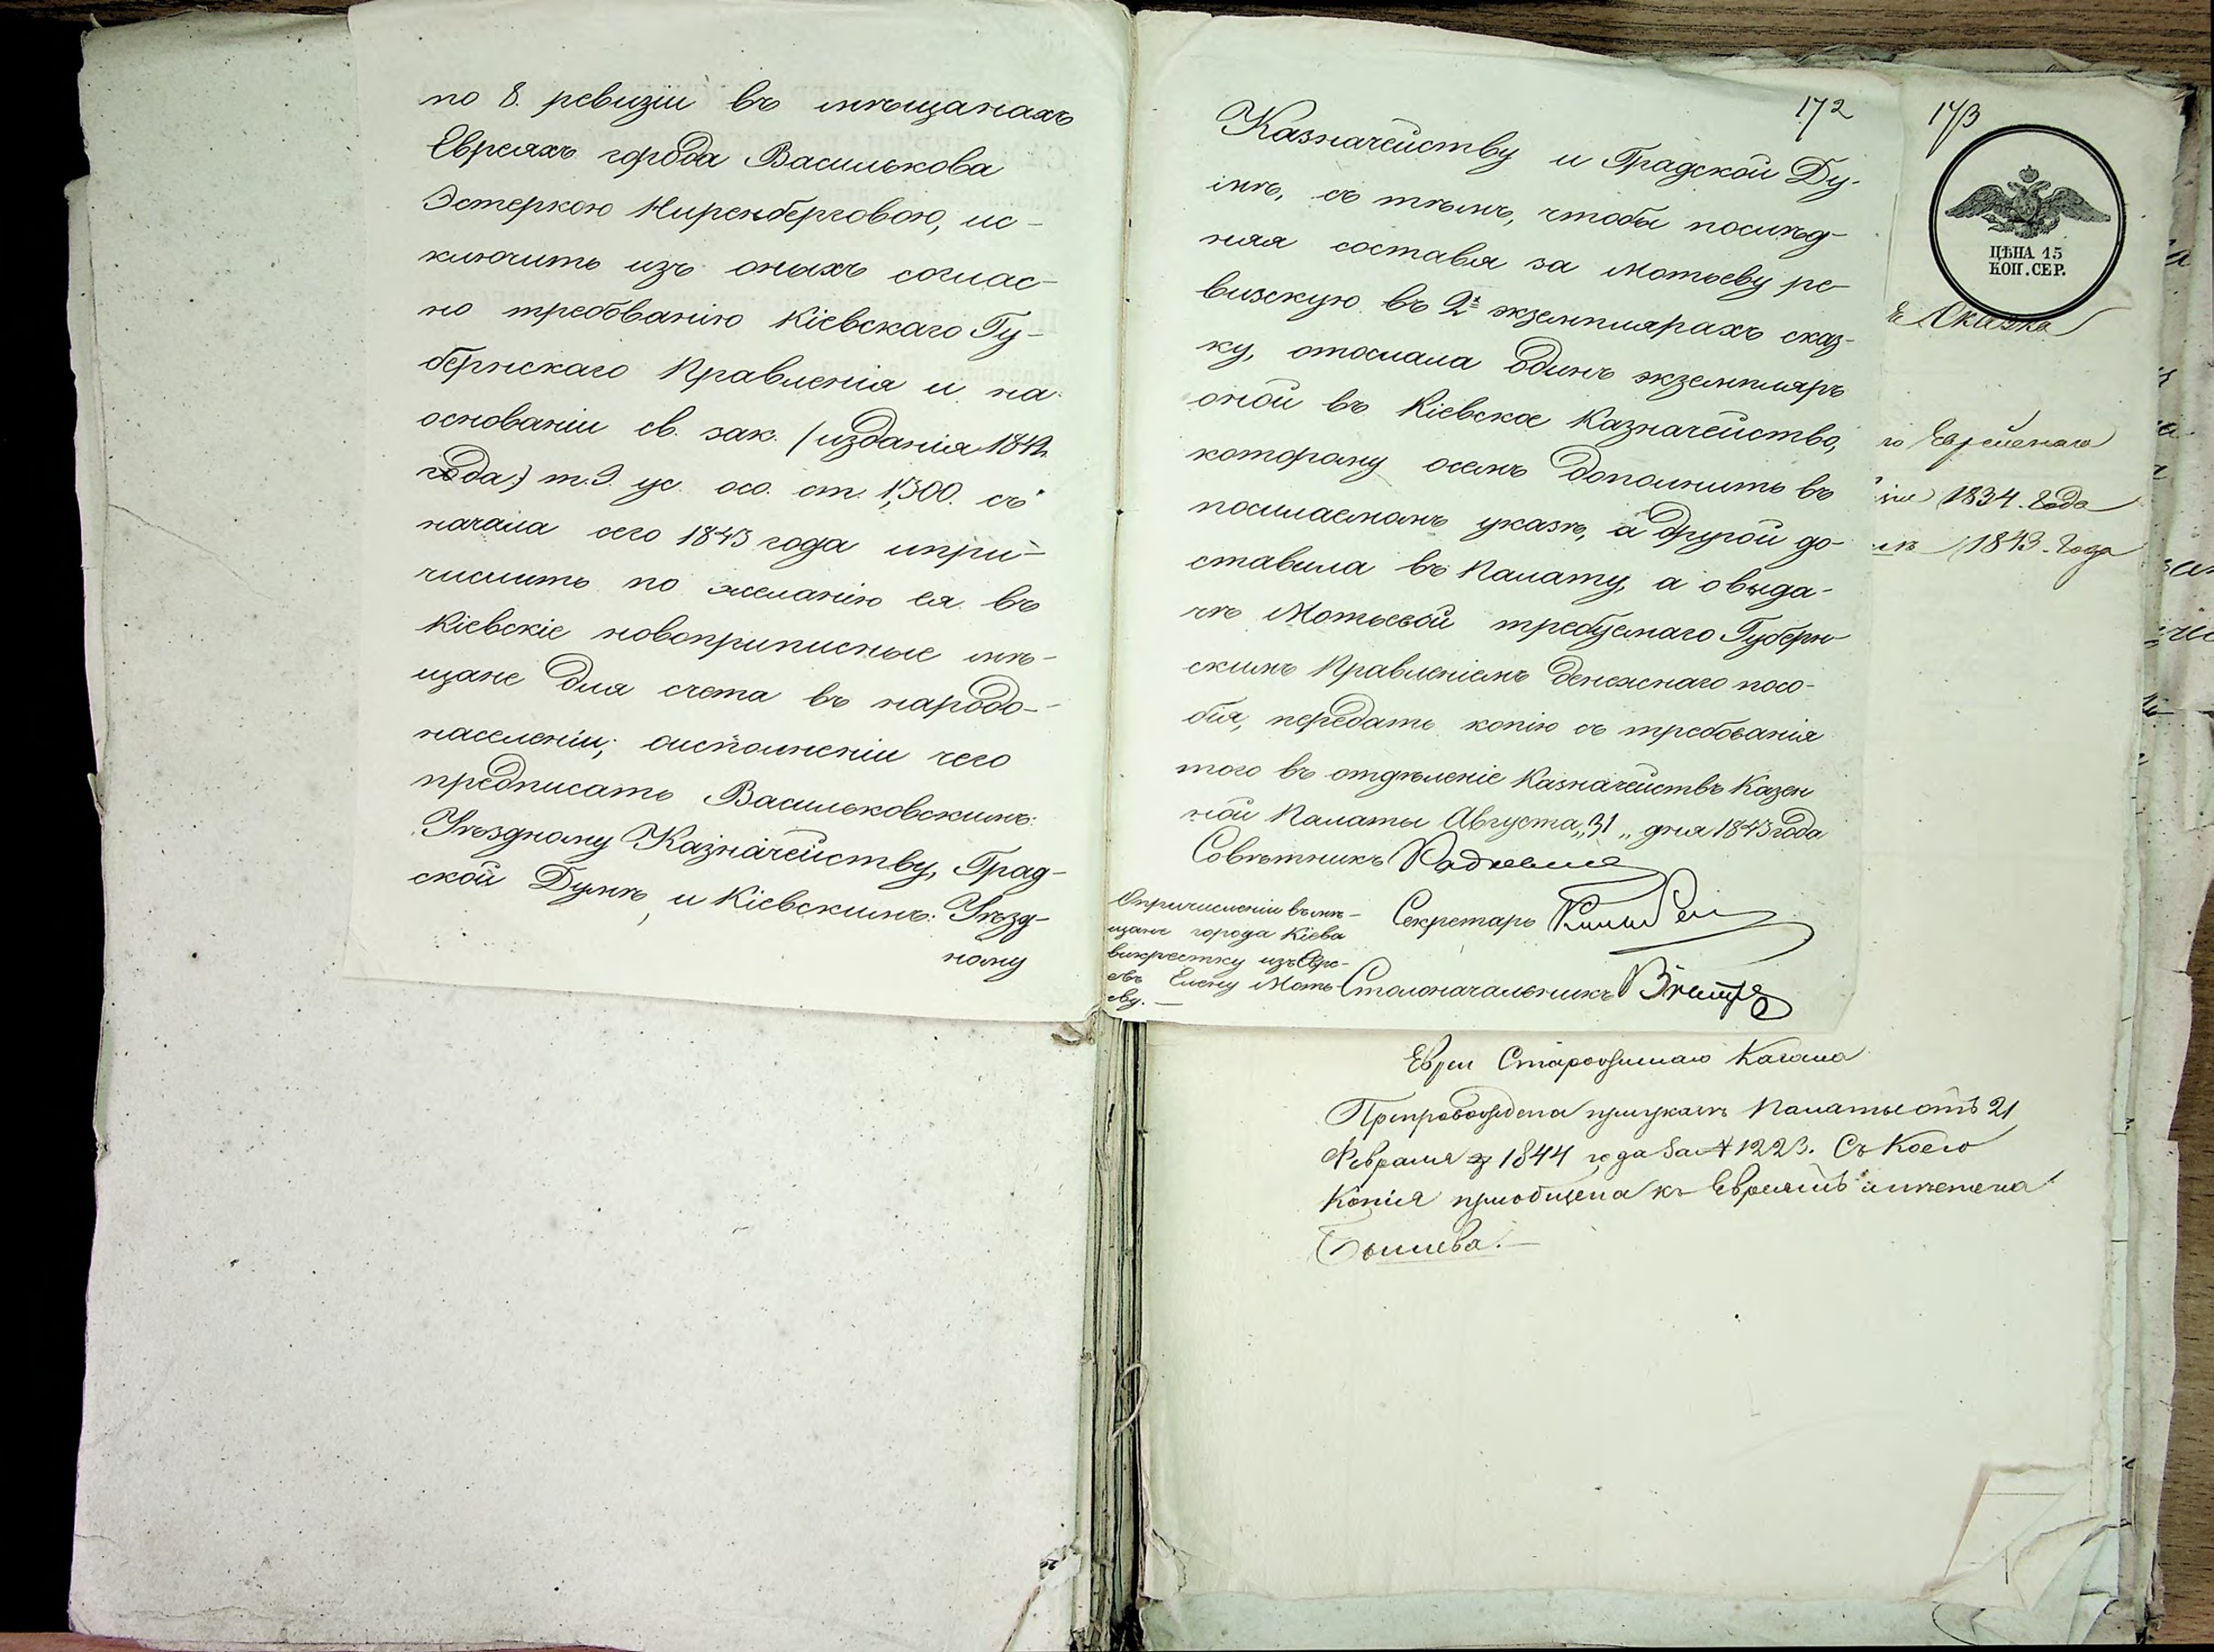 по 8. ревизіи въ мѣщанахъ
Евреяхъ города Василькова
Эстеркою Ниренберговою, ис-
ключить изъ оныхъ соглас-
но требованію Кіевскаго Гу-
бернскаго Правленія и на
основаніи св. зак. (изданія 1842
года) т. 9. ус. осо. ст. 1,500. съ
начала сего 1843 года и при-
числить по желанію ея въ
Кіевскіе новоприписные мѣ-
щане для счета въ народо-
населеніи; о исполненіи чего
предписать Васильковскимъ:
Уѣздному Казначейству, Град-
ской Думѣ, и Кіевскимъ: Уѣзд-
ному
172
Казначейству и Градской Ду-
мѣ, съ тѣмъ, чтобы послѣд-
няя составя за Мотьеву ре-
визскую въ 2хъ экземплярахъ сказ-
ку, отослала одинъ экземпляръ
оной въ Кіевское Казначейство,
которому осемъ дополнить въ
посылаемомъ указѣ, а другой до-
ставила въ Палату, а о выда-
чѣ Мотьевой требуемаго Губерн-
скимъ Правленіемъ денежнаго посо-
бія, передать копію съ требованія
того въ отдѣленіе Казначействъ Казен
ной Палаты Августа „31„ дня 1843 года
Совѣтникъ
Секретарь
Столоначальникъ
О причисленіи въ мѣ-
щане города Кіева
викрестку изъ Евре-
евъ Елену Моть-
еву. —
173
ЦѢНА 15
КОП. СЕР.
Сказка
го Еврейскаго
1834. Года
1843. Года
Евреи Старожилаго Кагала
Препровождена при указѣ Палаты отъ 21
Февраля 1844 года За № 1223. Съ Коего
Копія пріобщена къ Евреямъ мѣстечка
Бышева. —